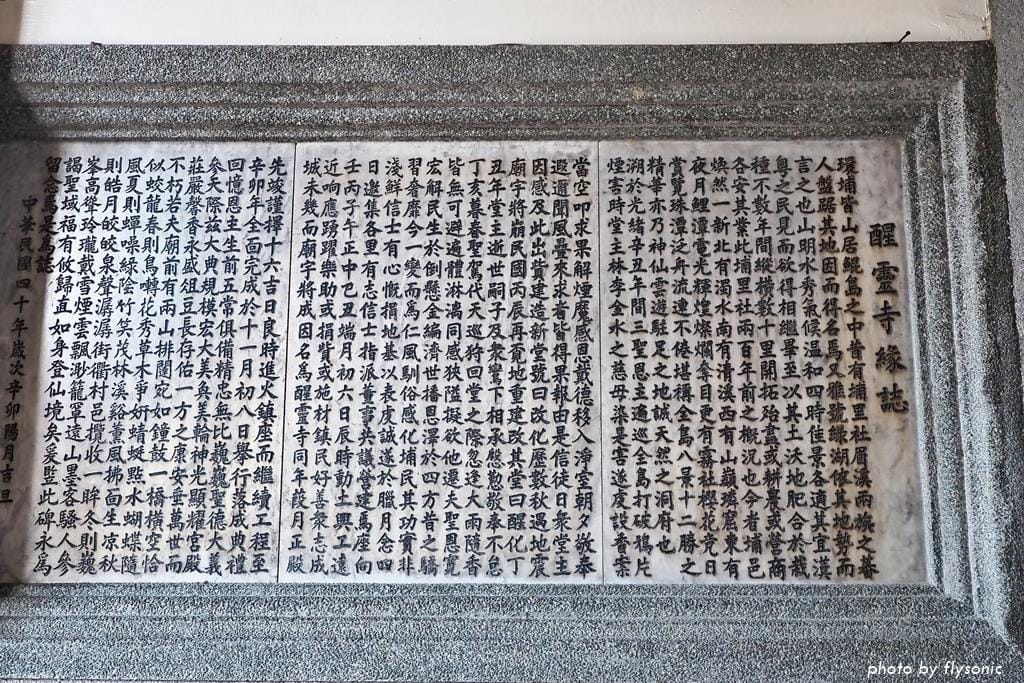 醒靈寺緣誌
環埔皆山居鯤島之中昔有埔里社眉溪兩族之蕃
人盤踞其地因而得名焉又雅號綠湖依其地勢而
言之也山明水秀氣候温和四時佳景各適其宜漢
粵之民見而欲得相繼畢至以其土沃地肥合於栽
種不數年間縱橫數十里開拓殆盡或耕農或營商
各安其業此埔里社兩百年前之概況也今者埔邑
煥然一新北有濁水南有清溪西有山嶺璘窟東有
夜月鯉潭電光輝煌燦爛奪目更有霧社櫻花竞日
賞覽珠潭泛舟流連不倦堪稱全島八景十二勝之
精華亦乃神仙雲遊駐足之地誠天然之洞府也
溯於光緒辛丑年間三聖恩主適巡全島打破鴉片
煙害時堂主林李金水之慈母染是害遂虔設香案
當空叩求果解煙魔感恩戴德移入淨堂朝夕敬奉
遐邇聞風疊來求者皆得果報由是信徒日衆堂主
因感及此出貲建造新堂號曰改化歷數秋遇地震
廟宇將崩民國丙辰再覓地重建改其堂曰醒化丁
丑年堂主逝世嗣子及衆鸞下相承慇懃敬奉不怠
丁亥暮春聖駕代天巡狩回堂之際忽逢大雨隨香
皆無可避遍體淋漓同感狹隘擬欲他遷夫聖恩寬
宏解民生於倒懸金編濟世播恩澤於四方昔之驕
習奢靡今一變而為仁風馴俗感化埔民其功實非
淺鮮信士有心慨捐地基以表虔誠遂於臘月念四
日邀集各里有志信士指派董事共議營建焉座向
壬丙子午正中己丑端月初六日辰時動土興工遠
近响應踴躍樂助或捐貲或施材鎮民好善衆志成
城未幾而廟宇將成因名為醒靈寺同年葭月正殿
先竣謹擇十六吉日良時進火鎮座而繼續工程至
辛卯年全面完成於十一月初八日舉行落成典禮
回憶恩主生前五常俱備精忠無比巍巍聖德大義
參天際兹大典規模宏大美奐美輪神光顯耀宮殿
莊嚴馨香永盛俎豆長存佑一方之康安垂萬世而
不朽若夫廟前有兩山排闥宛如鐘鼓一橋橫空恰
似蛟龍春則鳥囀花秀草木爭妍蜻蜓點水蝴蝶隨
風夏則蟬噪綠陰竹筊茂林溪谿薰風拂面生凉秋
則皓月皎皎泉聲潺潺街衢村邑攬收一眸冬則巍
峯高聳玲瓏戴雪煙雲飄渺籠罩遠山墨客騷人參
謁聖域福有攸歸直如身登仙境矣爰豎此碑永為
留念焉是為誌
中華民國四十年歲次辛卯陽月吉旦
photo by flysonic